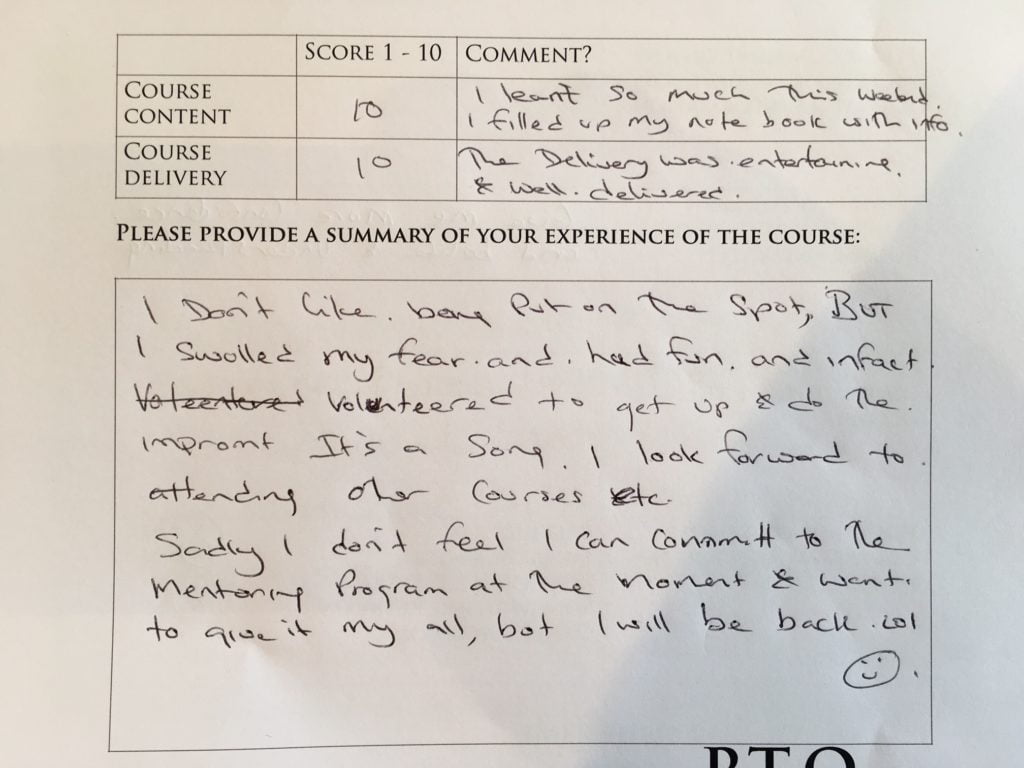 SCORE 1 - 10 COMMENT?
COURSE CONTENT
10
I learnt so much this weekend.
I filled up my note book with info.
COURSE DELIVERY
10
The Delivery was entertaining.
& well delivered.
PLEASE PROVIDE A SUMMARY OF YOUR EXPERIENCE OF THE COURSE:
I Don't like being Put on the Spot, BUT
I Swolled my fear and had fun, and infact
Volenteered to get up & do the
impromt It's a Song. I look forward to
attending other Courses etc.
Sadly I don't feel I can Committ to the
Mentoring Program at the moment & want
to give it my all, but I will be back lol
P.T.O